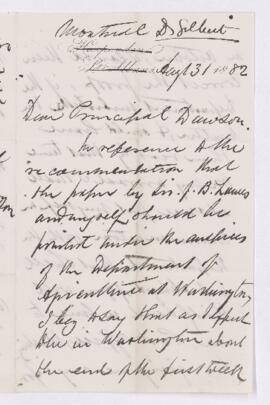 Montreal Dr Gilbert
Augt 31 1882
Dear Principal Dawson.
In reference to the
recommendation that
the paper by Sir. J. B. Lawes
and myself should be
printed under the auspices
of the Department of
Agriculture at Washington,
I beg to say that as I expect
to be in Washington about
the end of the first week